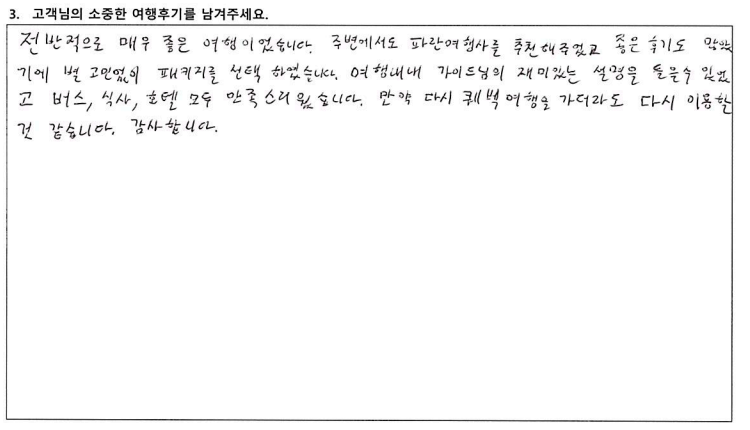 3. 고객님의 소중한 여행후기를 남겨주세요.
전반적으로 매우 좋은 여행이었습니다. 주변에서도 파란여행사를 추천해주었고 좋은 후기도 많았
기에 별 고민없이 패키지를 선택 하였습니다. 여행내내 가이드님의 재미있는 설명을 들을수 있었
고 버스, 식사, 호텔 모두 만족스러웠습니다. 만약 다시 퀘벡여행을 가더라도 다시 이용할
것 같습니다. 감사합니다.